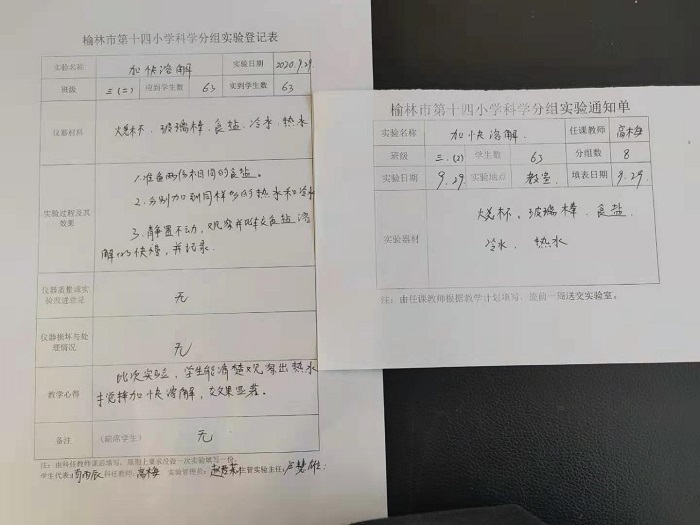 榆林市第十四小学科学分组实验登记表
实验名称 加快溶解 实验日期 2020.9.29
班级 三(二) 应到学生数 63 实到学生数 63
仪器材料 烧杯、玻璃棒、食盐、冷水、热水
1.准备两份相同的食盐。
2.分别加到同样多的热水和冷水
实验过程及其效果
3.静置不动,观察并比较食盐溶
解的快慢,并记录.
仪器质量或实验改进意见 无
仪器损坏与处理情况 无
教学心得
此次实验,学生能清楚观察出热水
搅拌加快溶解,效果显著。
备注 (缺席学生) 无
注:由科任教师课前填写,原则上要求每做一次实验填写一份。
学生代表: 科任教师:高梅 实验管理员: 主管实验主任:
榆林市第十四小学科学分组实验通知单
实验名称 加快溶解. 任课教师 高梅
班级 三.(2) 学生数 63 分组数 8
实验日期 9.29. 实验地点 教室. 填表日期 9.29.
实验器材
烧杯、玻璃棒、食盐.
冷水、热水
注:由任课教师根据教学计划填写,提前一周送交实验室。